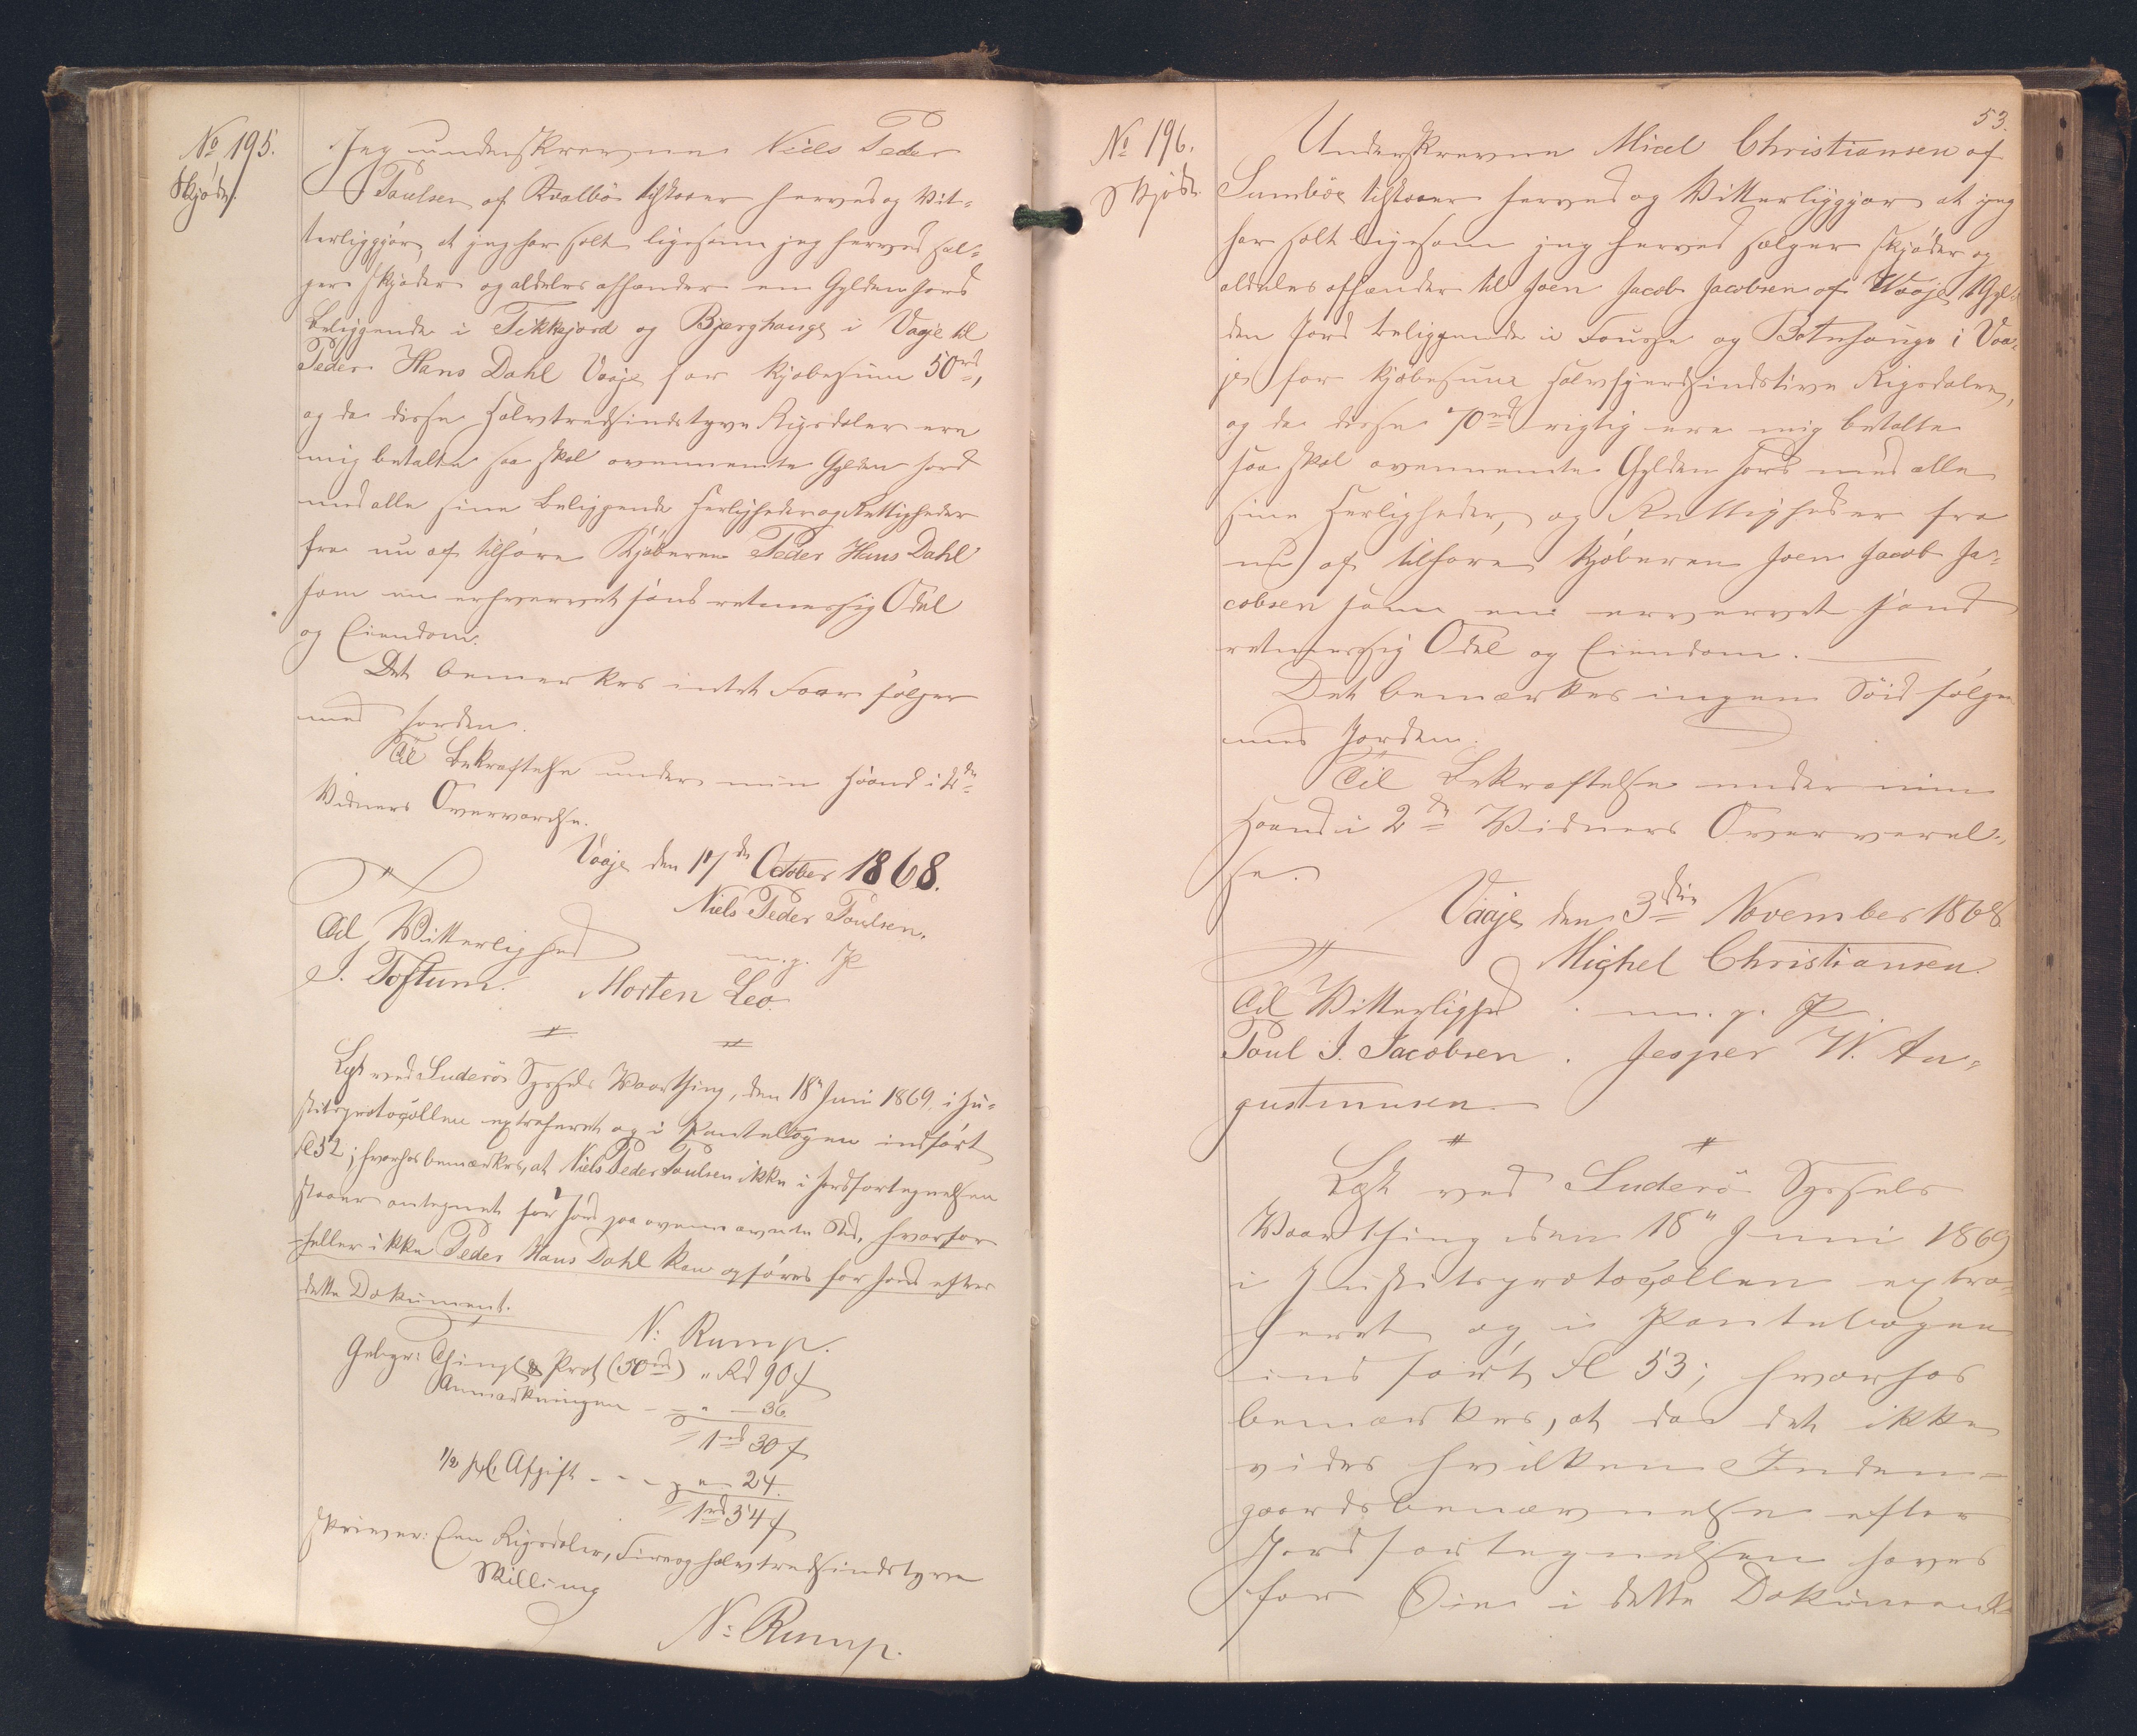 No 195.
Skjøde.
Jeg underskrevne Niels Peder
Poulsen af Kvalbö tilstaaer herved og Vit-
terliggjör, at jeg har solt ligesom jeg herved sæl-
ger skjøder og aldeles afhænder en Gylden Jord
beliggende i Tekkejord og Bjærghauge i Vaaje til
Peder Hans Dahl Vaaje for kjøbesum 50rd,
og da disse halvtredsindstyve Rigsdaler ere
mig betalte saa skal ovennemte Gylden Jord
med alle sine beliggende Herligheder og Rettigheder
fra nu af tilhøre Kjøberen Peder Hans Dahl
som en erhvervet hans retmessig Odel
og Eiendom.
Det bemerkes intet Faar følger
med Jorden.
Til Bekræftelse under min Haand i 2de
Vidners Overværelse.
Vaaje den 17de October 1868.
Niels Peder Poulsen.
m. p. P
Til Vitterlighed
J. Toftum. Morten Leo.
Læst ved Suderö Syssels Vaarthing, den 18" Juni 1869, i Ju-
stitsprotocollen extraheret og i Pantebogen indført
Fl 52; hvorhos bemærkes, at Niels Peder Poulsen ikke i Jordfortegnelsen
staaer antegnet for Jord paa ovennævnte Sted, hvorfor
heller ikke Peder Hans Dahl kan opføres for Jord efter
dette Dokument.
N: Rump.
Gebyr: Thingl & Prot (50rd) " Rd 90 ß
Anmærkningen - - " - 36.
1rd 30 ß
1/2 pCt. Afgift - - - " - 24.
1rd 54 ß
skriver: Een Rigsdaler, Fireoghalvtredsindstyve
Skilling
N: Rump.
53.
No 196.
Skjøde.
Underskrevne Micel Christiansen af
Sumböe tilstaaer herved og Vitterliggjør at jeg
har solt ligesom jeg herved sælger skjøder og
aldeles afhænder til Joen Jacob Jacobsen af Vaaje 1 Gyl-
den Jord beliggende i og Botnhauge i Vaa-
je for kjøbesum halvfjerdsindstive Rigsdaler,
og da disse 70rd rigtig ere mig betalte
saa skal ovennemte Gylden Jord med alle
sine Herligheder, og Rettigheder fra
nu af tilhøre Kjøberen Joen Jacob Ja-
cobsen som en ervervet hans
retmessig Odel og Eiendom.
Det bemærkes ingen Söid følger
med Jorden.
Til Bekræftelse under min
Haand i 2de Vidners Oververel-
se.
Vaaje, den 3die November 1868
Michel Christiansen.
Til Vitterlighed. m. p. P.
Poul J. Jacobsen. Jesper W. Au-
gustinusen.
Læst ved Suderö Syssels
Vaarthing den 18" Juni 1869
i Justitsprotocollen extra-
heret og i Pantebogen
indført Fl 53; hvorhos
bemærkes, at da det ikke
vides hvilken Inden-
gaardsbenævnelse efter
Jordfortegnelsen haves
for Øie i dette Dokument